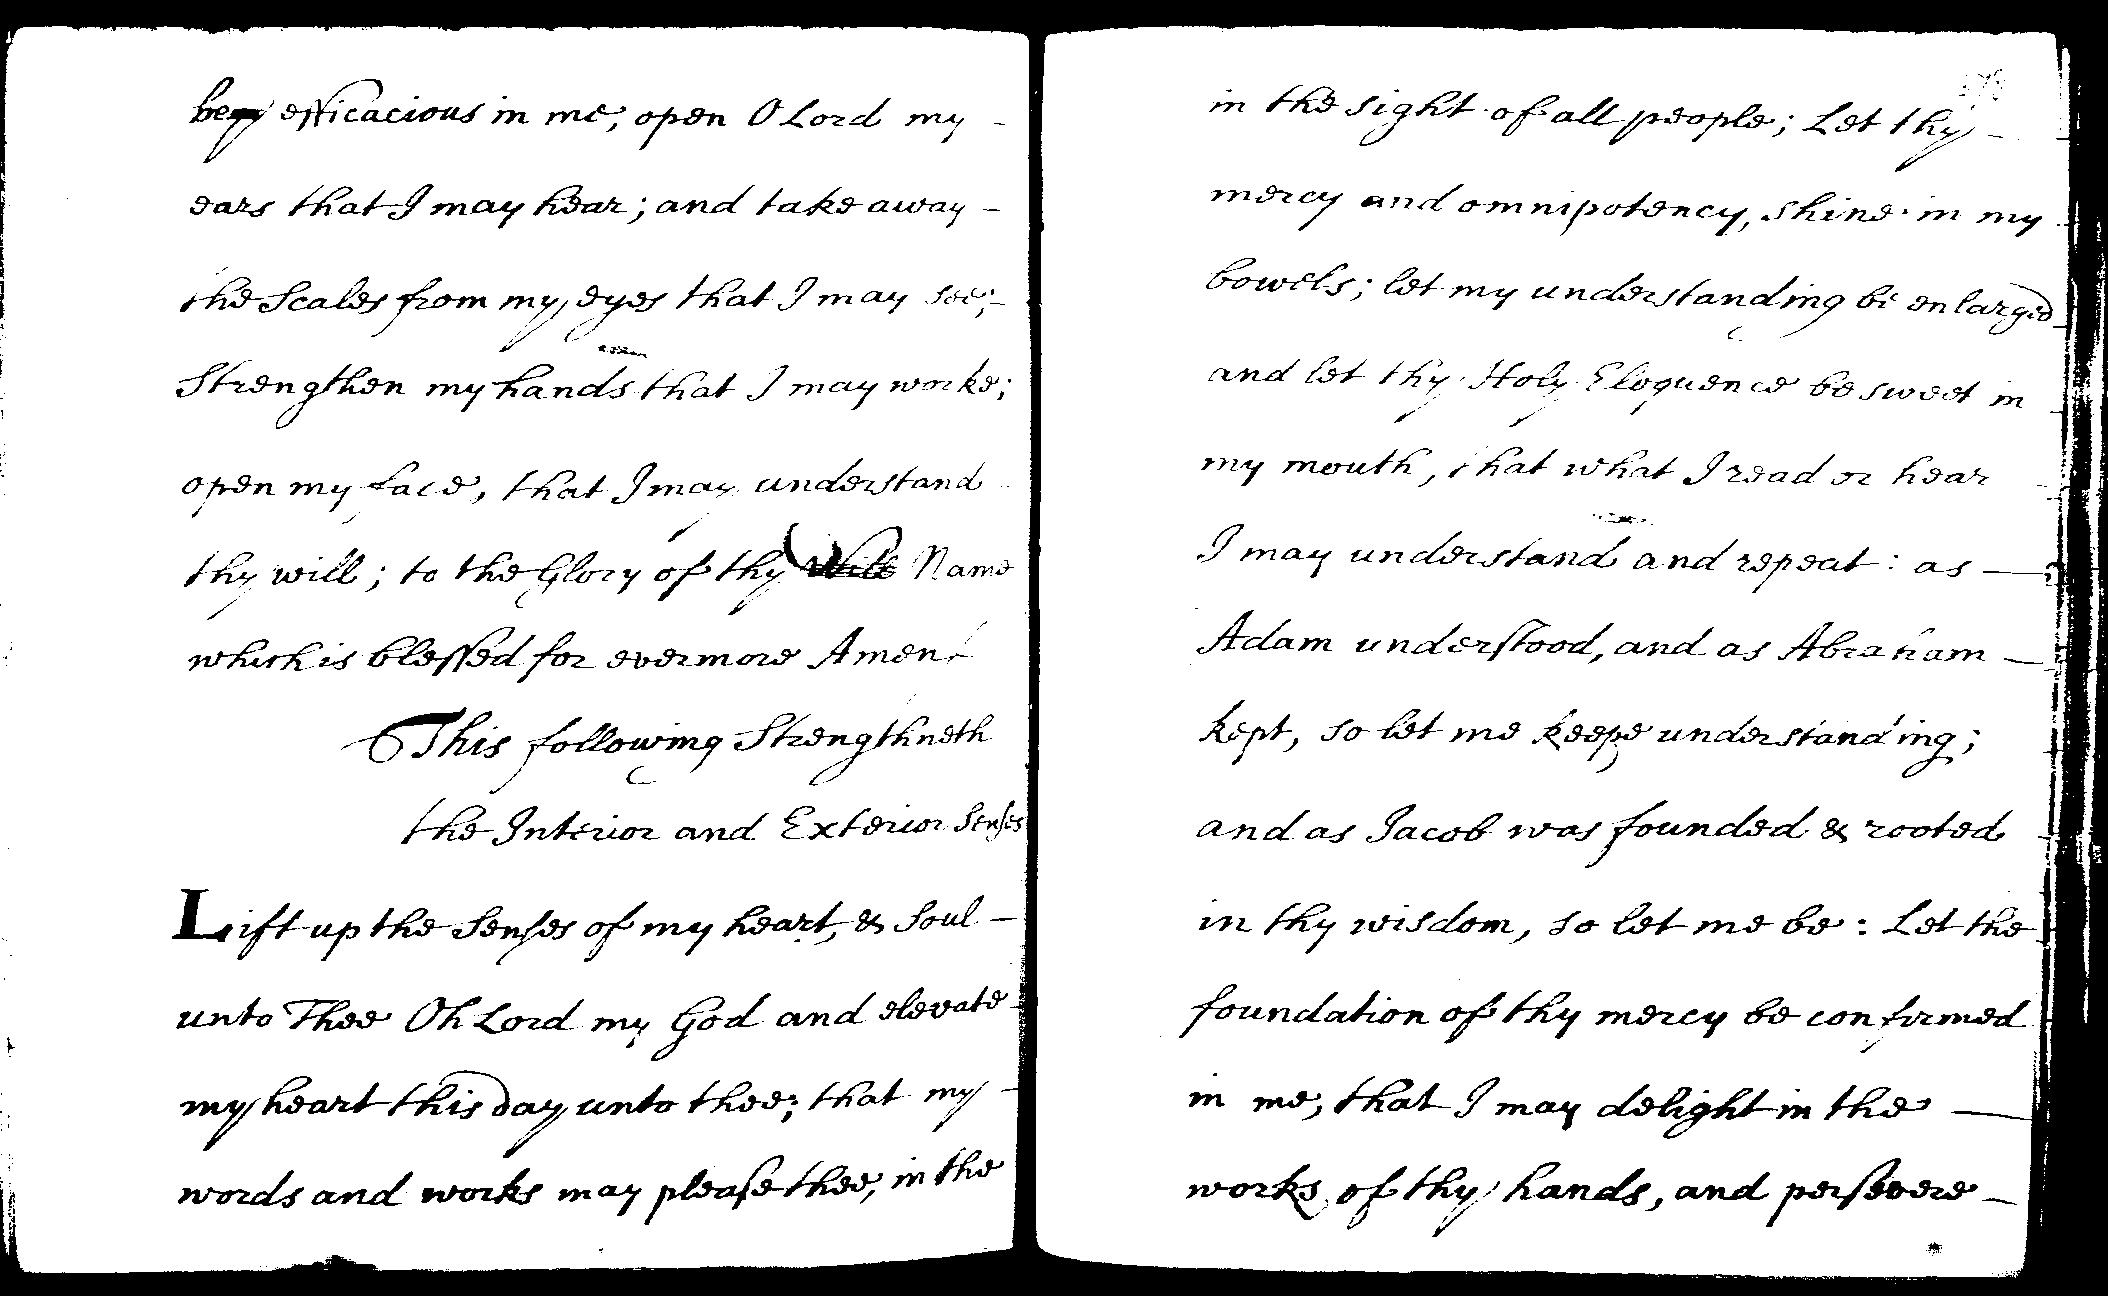 be efficacious in me, open O Lord my -
ears that I may hear; and take away -
the Scales from my eyes that I may see; -
Strengthen my hands that I may worke;
open my face, that I may understand
thy will; to the Glory of thy Will Name
which is blessed for evermore Amen
This following Strengthneth
the Interior and Exterior Senses
Lift up the Senses of my heart, & Soul -
unto Thee Oh Lord my God and elevate
my heart this day unto thee; that my -
words and works may please thee, in the
in the sight of all people; Let thy -
mercy and omnipotency, shine in my
bowels; let my understanding be enlarged
and let thy Holy Eloquence be sweet in
my mouth, that what I read or hear
I may understand and repeat: as —
Adam understood, and as Abraham —
kept, so let me keepe understanding;
and as Jacob was founded & rooted
in thy wisdom, so let me be: Let the
foundation of thy mercy be confirmed
in me, that I may delight in the —
works of thy hands, and persevere -